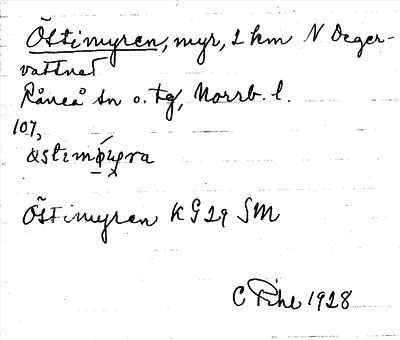 Östimyren, myr, 2 km N Deger-
vattnet
Råneå sn o. tg, Norrb. l.
107,
Östimyren KG29 SM
C Pihl 1928